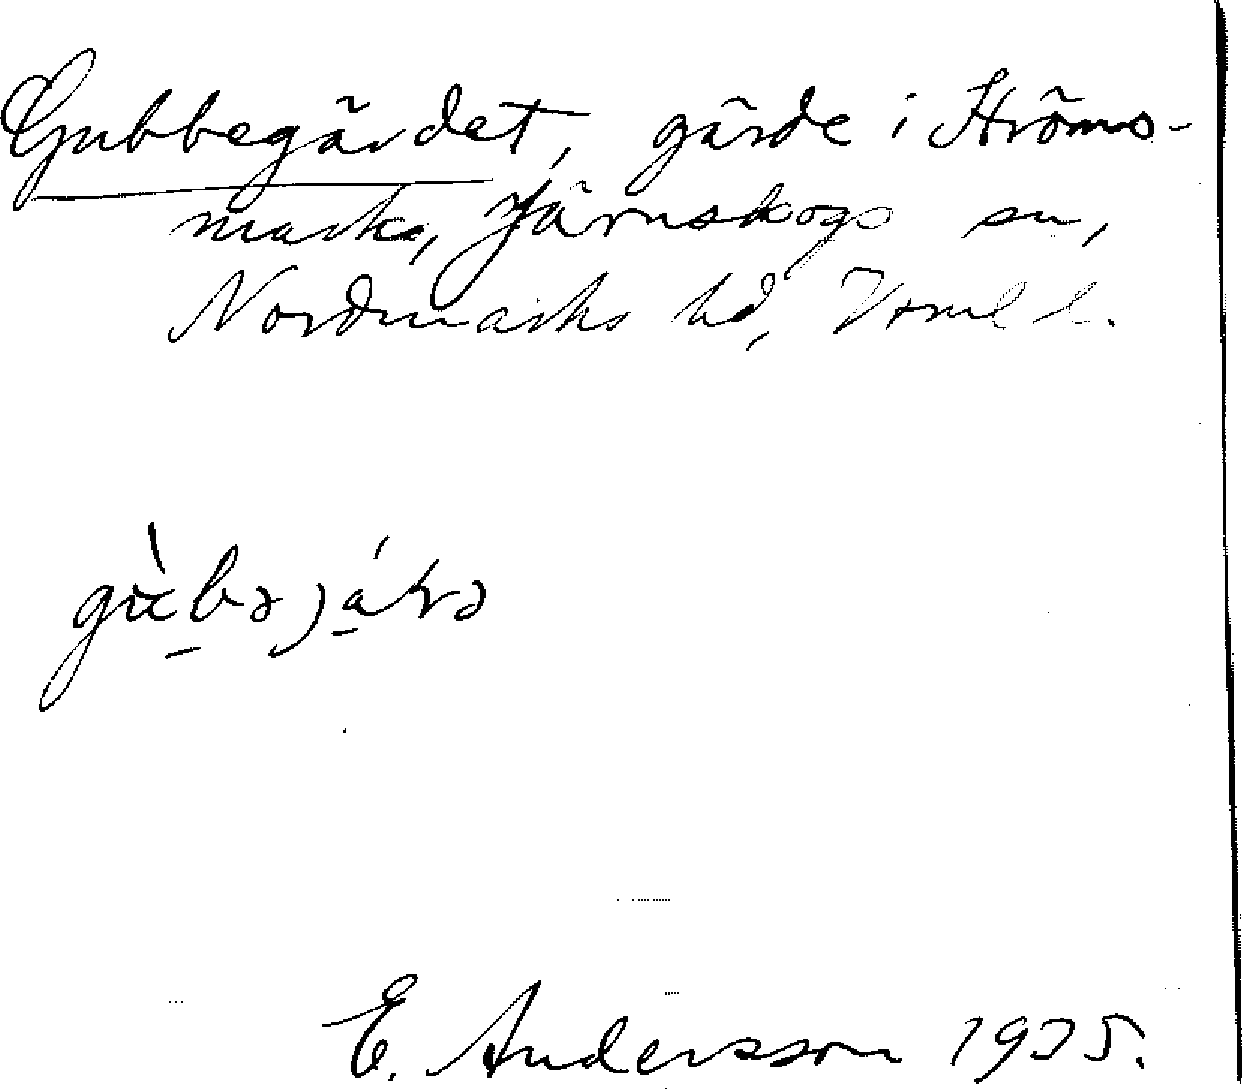 Gubbegärdet, gärde i Ströms-
mark, Järnskogs sn,
Nordmarks hd, Vrml l.
E. Andersson 1925.